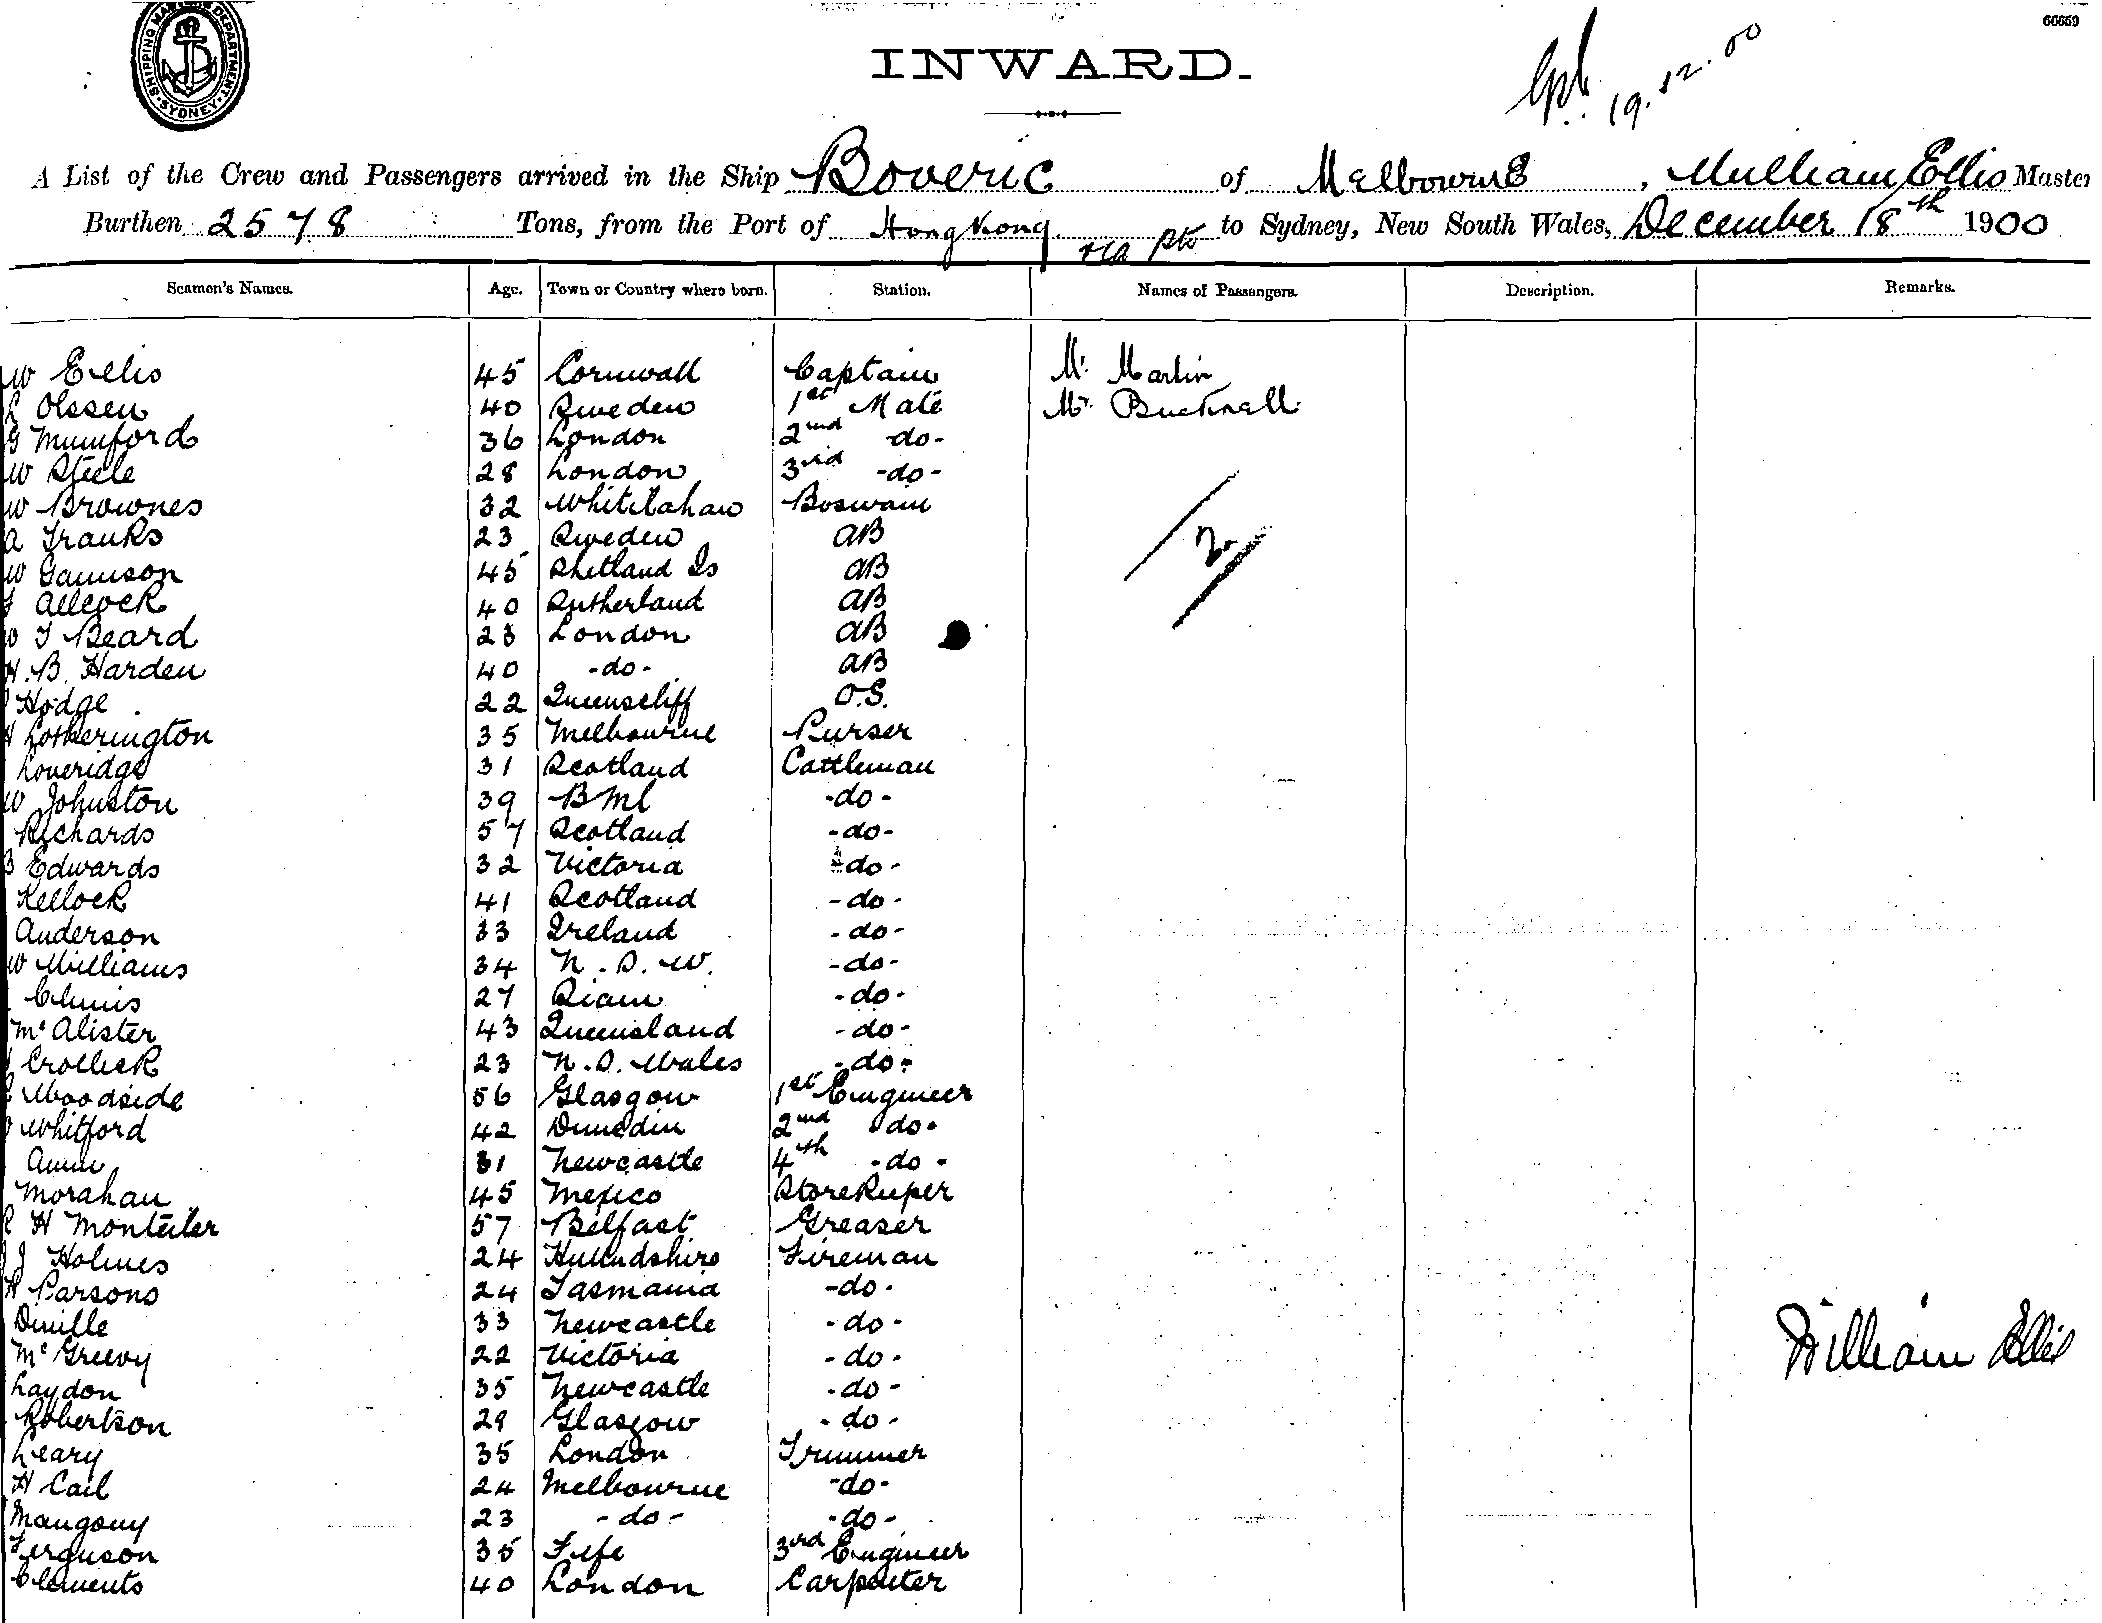 SHIPPING MASTERS DEPARTMENT. SYDNEY
66659
INWARD.
19.12.00
A List of the Crew and Passengers arrived in the Ship Boveric of Melbourne, William Ellis Master
Burthen 2578 Tons, from the Port of Hong Kong via pts to Sydney, New South Wales, December 18th 1900
Seamen's Names. Age. Town or Country where born. Station. Names of Passengers. Description. Remarks.
W Ellis 45 Cornwall Captain Mr Martin
L Olssen 40 Sweden 1st Mate Mr Bucknall
G Mumford 36 London 2nd -do-
W Steele 28 London 3rd -do-
W Brownes 32 Boswain
A Franks 23 Sweden AB
W Jamison 45 Shetland Is AB
Allcock 40 Sutherland AB
W T Beard 23 London AB
H. B. Harden 40 -do- AB
Hodge 22 Queenscliff O.S.
H Lotherington 35 Melbourne Purser
Loveridge 31 Scotland Cattleman
W Johnston 39 -do-
Richards 57 Scotland -do-
B Edwards 32 Victoria -do-
Kellock 41 Scotland -do-
Anderson 33 Ireland -do-
W Williams 34 N. S. W. -do-
27 Siam -do-
Mc Alister 43 Queensland -do-
Crolluck 23 N. S. Wales -do-
Woodside 56 Glasgow 1st Engineer
Whitford 42 Dunedin 2nd do-
31 Newcastle 4th -do-
Morahan 45 Mexico Storekeeper
R H 57 Belfast Greaser
J Holmes 24 Fireman
H Parsons 24 Tasmania -do-
33 Newcastle -do-
Mc Greevy 22 Victoria -do-
Laydon 35 Newcastle -do-
Robertson 29 Glasgow -do-
Leary 35 London Trimmer
H Cail 24 Melbourne -do-
23 -do- -do-
Ferguson 35 Fife 3rd Engineer
Clements 40 London Carpenter
William Ellis